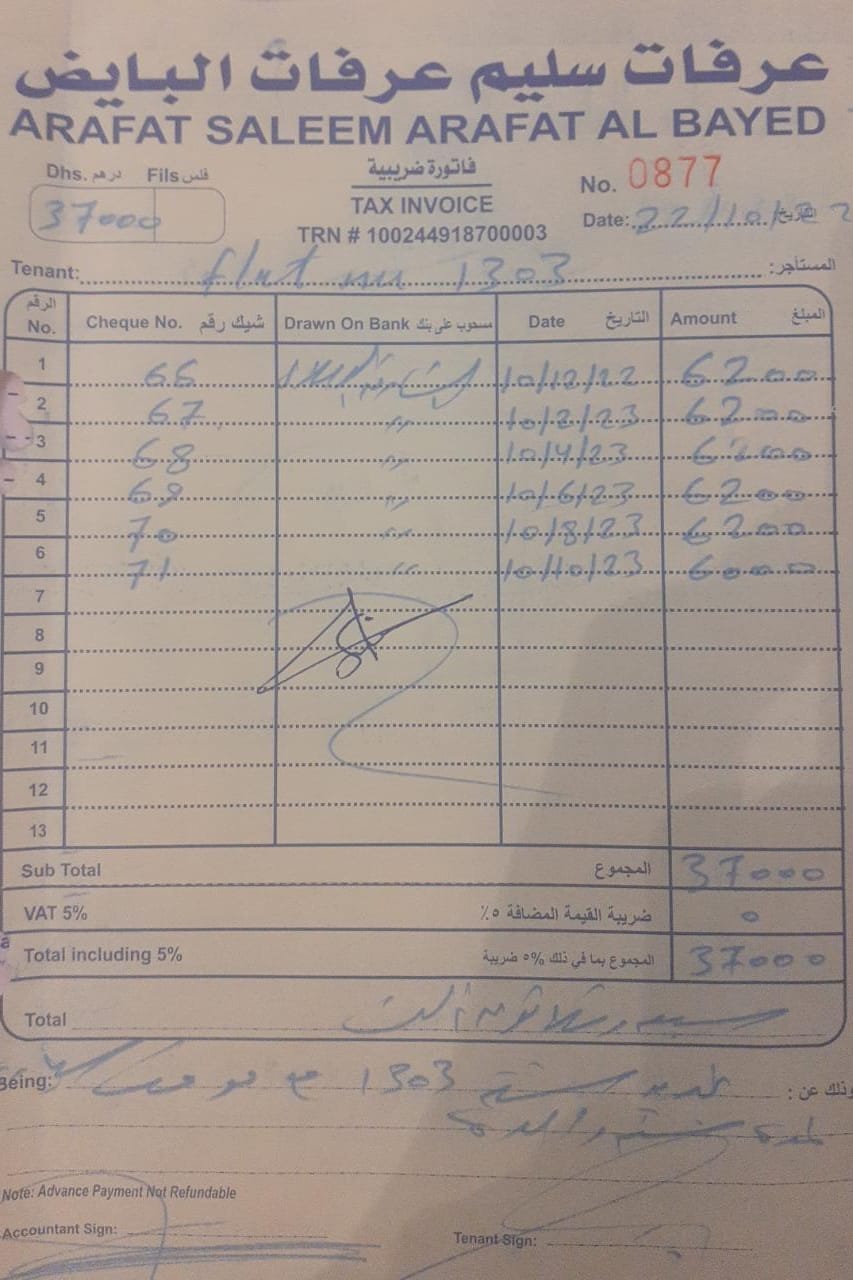 عرفات سليم عرفات البايض
ARAFAT SALEEM ARAFAT AL BAYED
Dhs. درهم Fils فلس
37000
فاتورة ضريبية
TAX INVOICE
TRN # 100244918700003
No. 0877
Date: 22/10/22 التاريخ
Tenant: flat no 1303 المستأجر:
الرقم No. Cheque No. شيك رقم Drawn On Bank مسحوب على بنك Date التاريخ Amount المبلغ
1 66 10/12/22 6200
2 67 " 10/2/23 6200
3 68 " 10/4/23 6200
4 69 " 10/6/23 6200
5 70 " 10/8/23 6200
6 71 " 10/10/23 6000
7
8
9
10
11
12
13
Sub Total المجموع 37000
VAT 5% ضريبة القيمة المضافة ٥٪ 0
Total including 5% المجموع بما في ذلك ٥% ضريبة 37000
Total سبعة وثلاثون ألف
Being: 1303 وذلك عن :
لمدة سنة واحدة
Note: Advance Payment Not Refundable
Accountant Sign:
Tenant Sign: